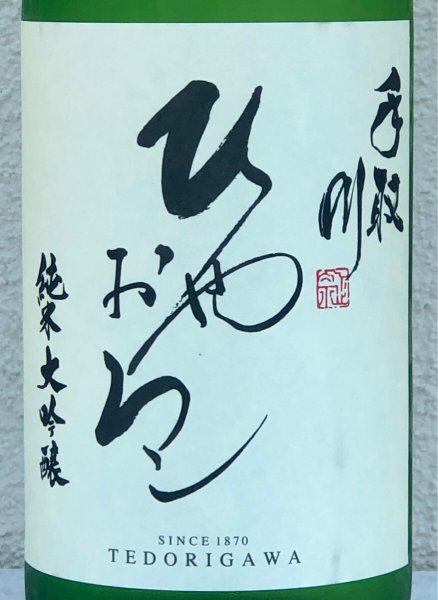 手取川
ひや
おろし
純米大吟醸
SINCE 1870
TEDORIGAWA